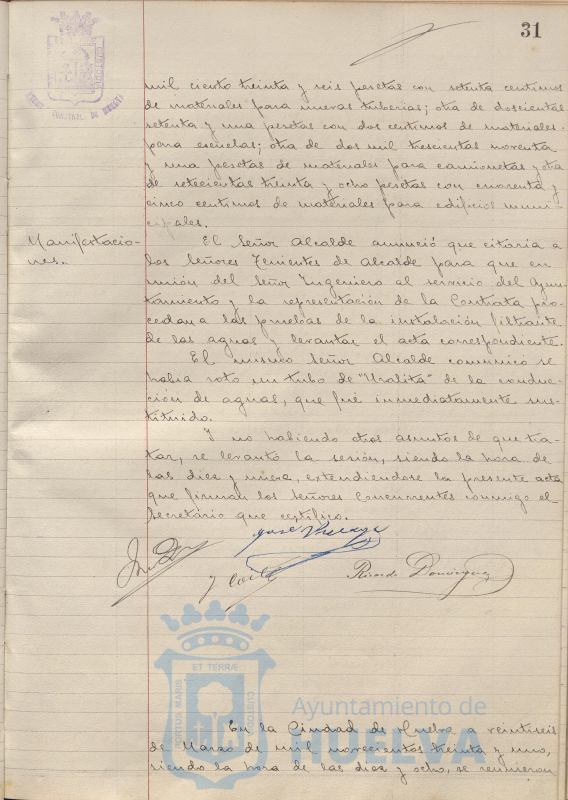 31
mil ciento treinta y seis pesetas con setenta centimos
de materiales para nuevas tuberias; otra de doscientas
setenta y una pesetas con dos centimos de materiales
para escuelas; otra de dos mil trescientas noventa
y una pesetas de materiales para camionetas y otra
de setecientas treinta y ocho pesetas con cuarenta y
cinco centimos de materiales para edificios muni-
cipales.
Manifestacio-
nes.
El Señor Alcalde anunció que citaria a
los Señores Tenientes de Alcalde para que en
unión del Señor Ingeniero al servicio del Ayun-
tamiento y la representación de la Contrata pro-
cedan a las pruebas de la instalación filtrante
de las aguas y levantar el acta correspondiente.
El mismo Señor Alcalde comunicó se
habia roto un tubo de "Uralita" de la conduc-
ción de aguas, que fué inmediatamente sus-
tituido.
Y no habiendo otros asuntos de que tra-
tar, se levantó la sesión, siendo la hora de
las diez y nueve, extendiendose la presente acta
que firman los Señores Concurrentes conmigo el
Secretario que certifico.
José
Ricardo Dominguez
ET TERRÆ
PORTUS MARIS
CUSTODIA
Ayuntamiento de
HUELVA
En la Ciudad de Huelva a veintiseis
de Marzo de mil novecientos treinta y uno,
siendo la hora de las diez y ocho, se reunieron